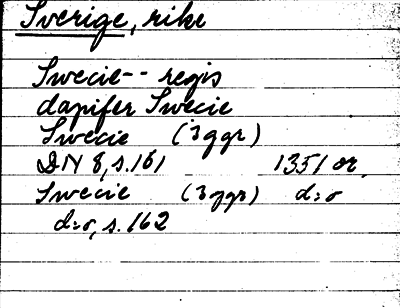 Sverige, rike
Swecie-- regis
dapifer Swecie
Swecie (3 ggr)
DN 8, s. 161 1351 or.
Swecie (3 ggr) d:o
d:o, s. 162